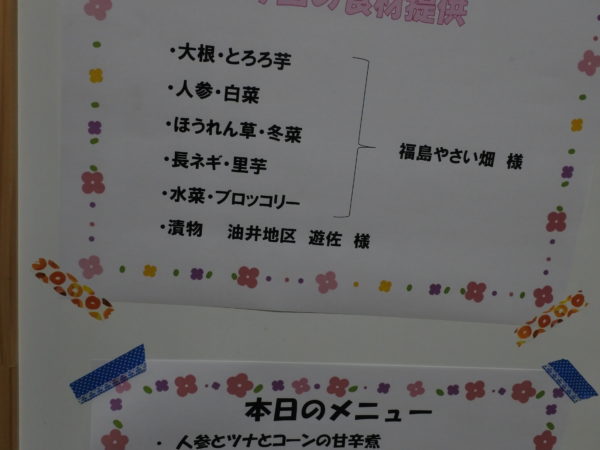 今回の食材提供
・大根・とろろ芋
・人参・白菜
・ほうれん草・冬菜
・長ネギ・里芋
・水菜・ブロッコリー
福島やさい畑 様
・漬物 油井地区 遊佐 様
本日のメニュー
・人参とツナとコーンの甘辛煮